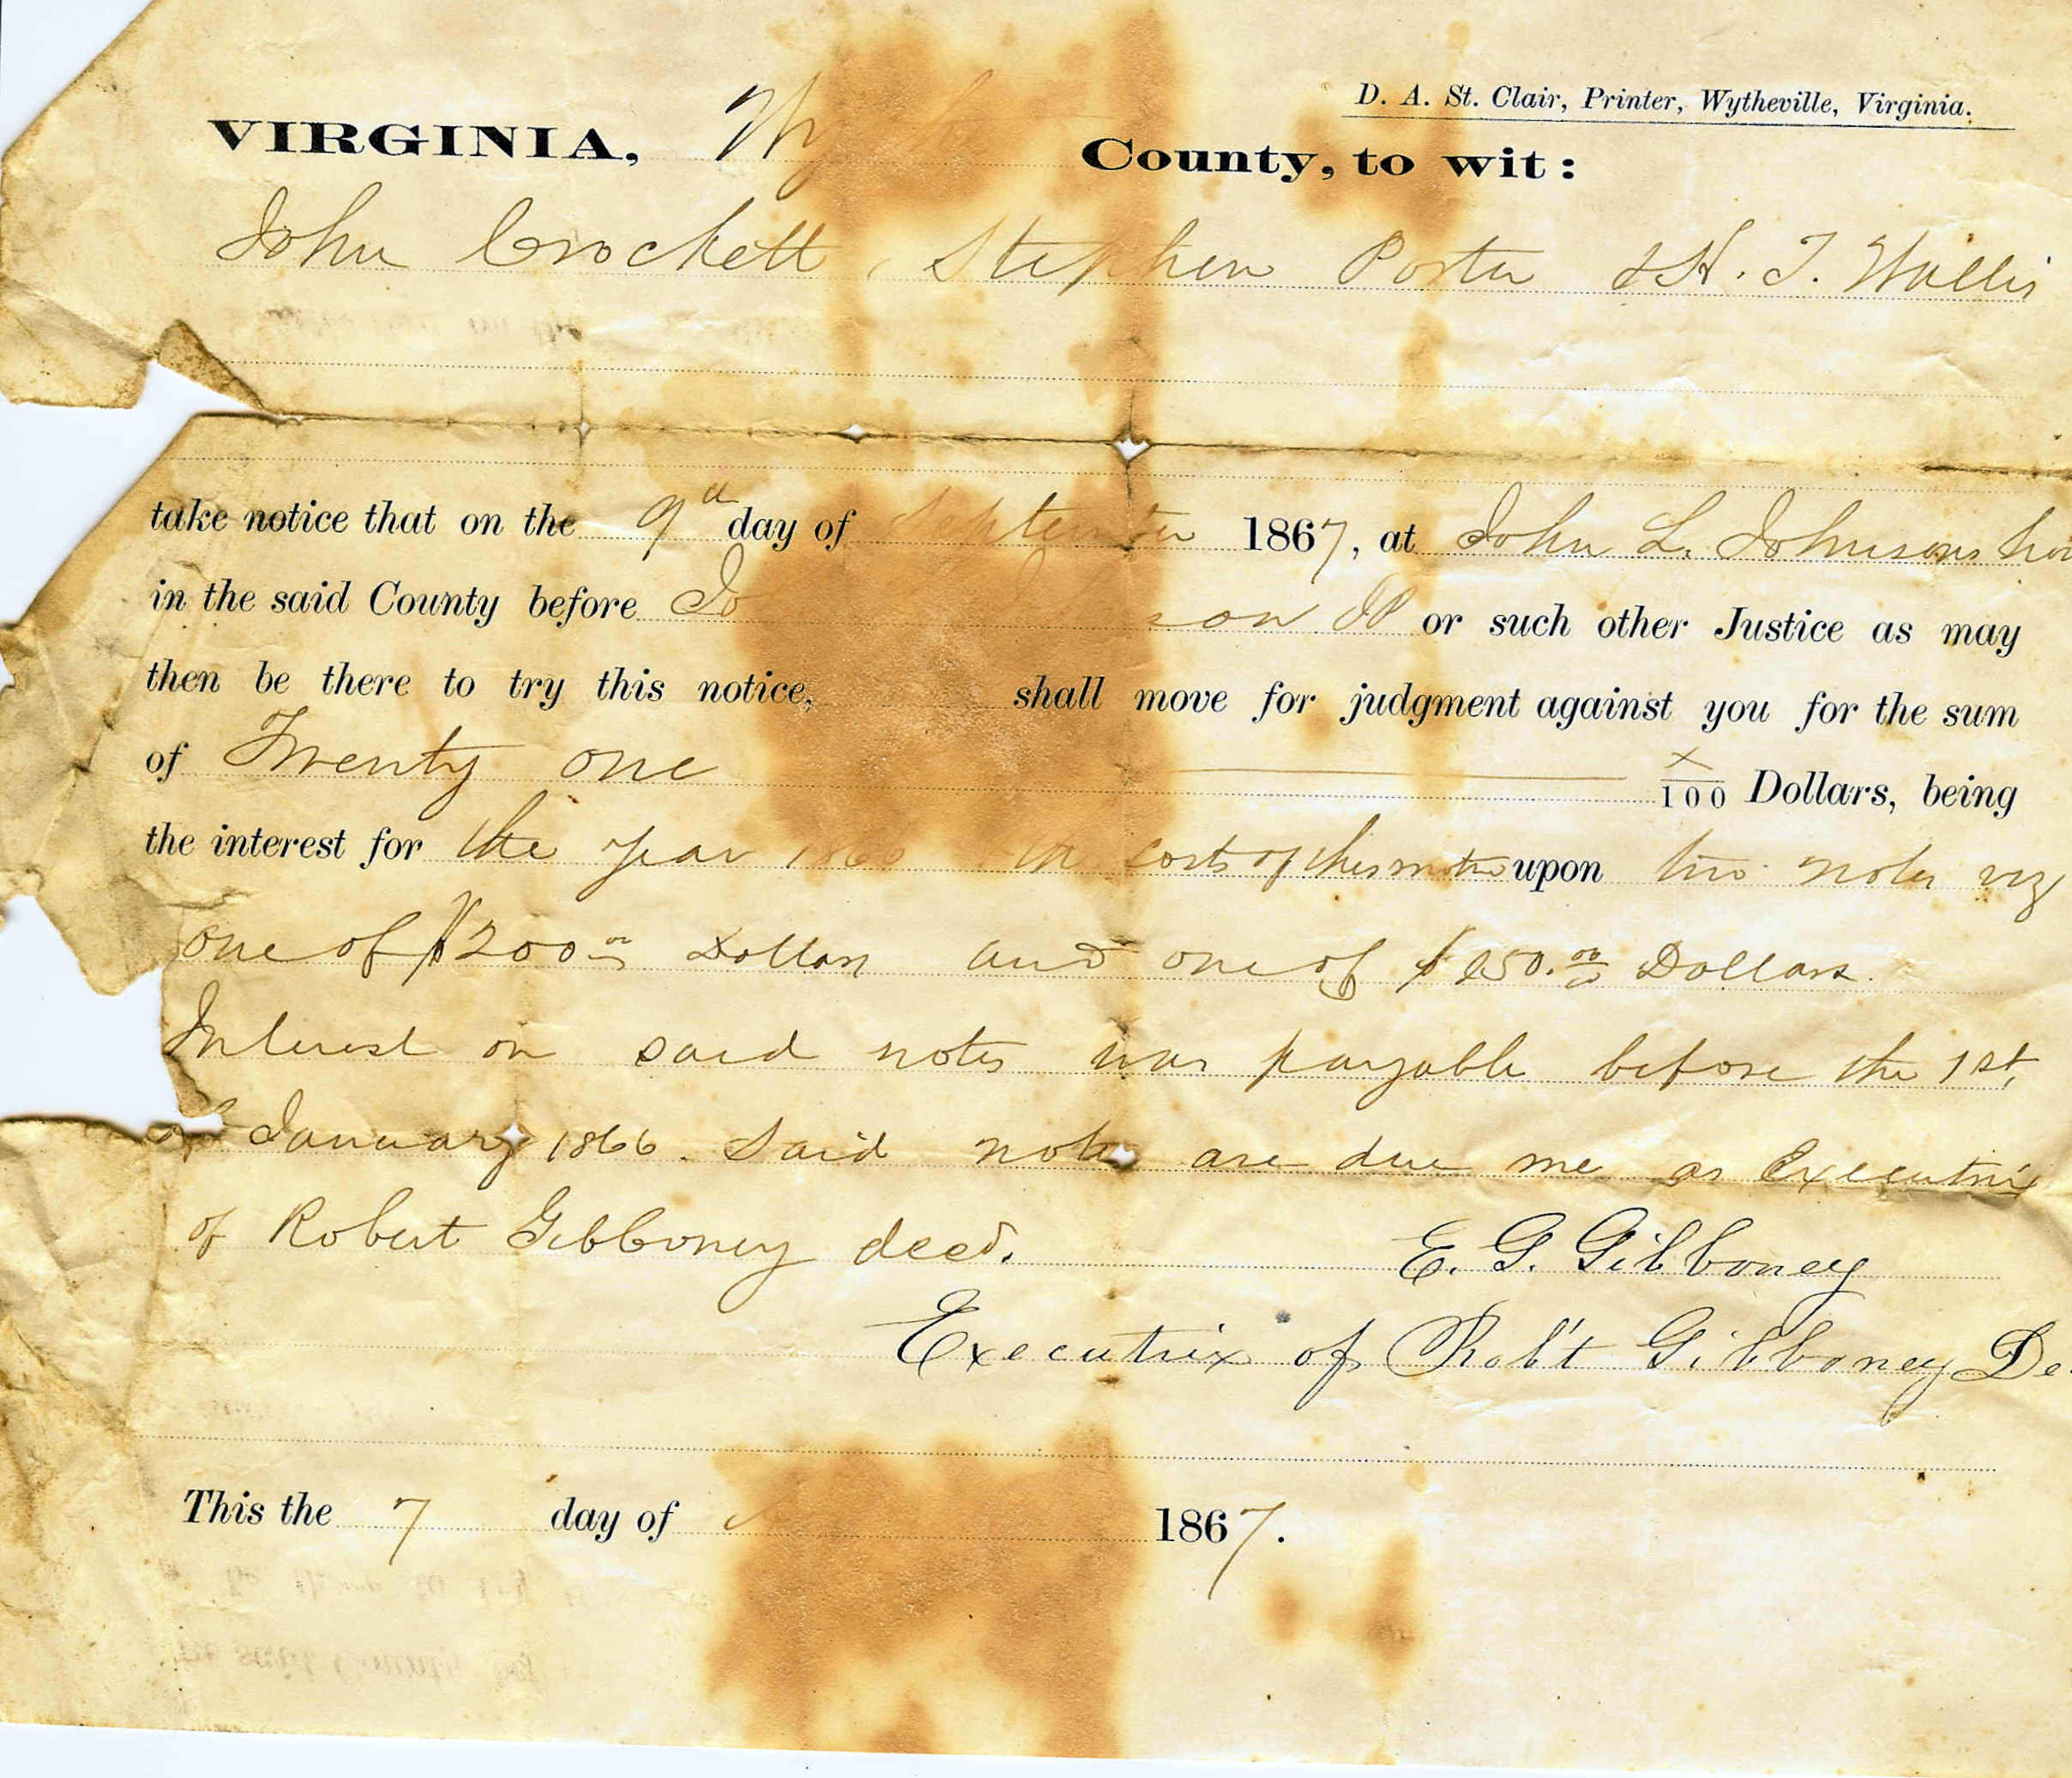 D. A. St. Clair, Printer, Wytheville, Virginia.
VIRGINIA, Wy County, to wit:
John Crockett, Stephen Porter & H. T. Wallis
take notice that on the 9th day of September 1867, at John L. Johnsons
in the said County before Jo son JP or such other Justice as may
then be there to try this notice, shall move for judgment against you for the sum
of Twenty one x/100 Dollars, being
the interest for the year 1866 costs of this upon two notes viz
one of $200.00 Dollars and one of $150.00 Dollars.
Interest on said notes was payable before the 1st,
of January 1866. Said notes are due me as Executrix
of Robert Gibboney decd.
E. G. Gibboney
Executrix of Rob't Gibboney De
This the 7 day of 1867.